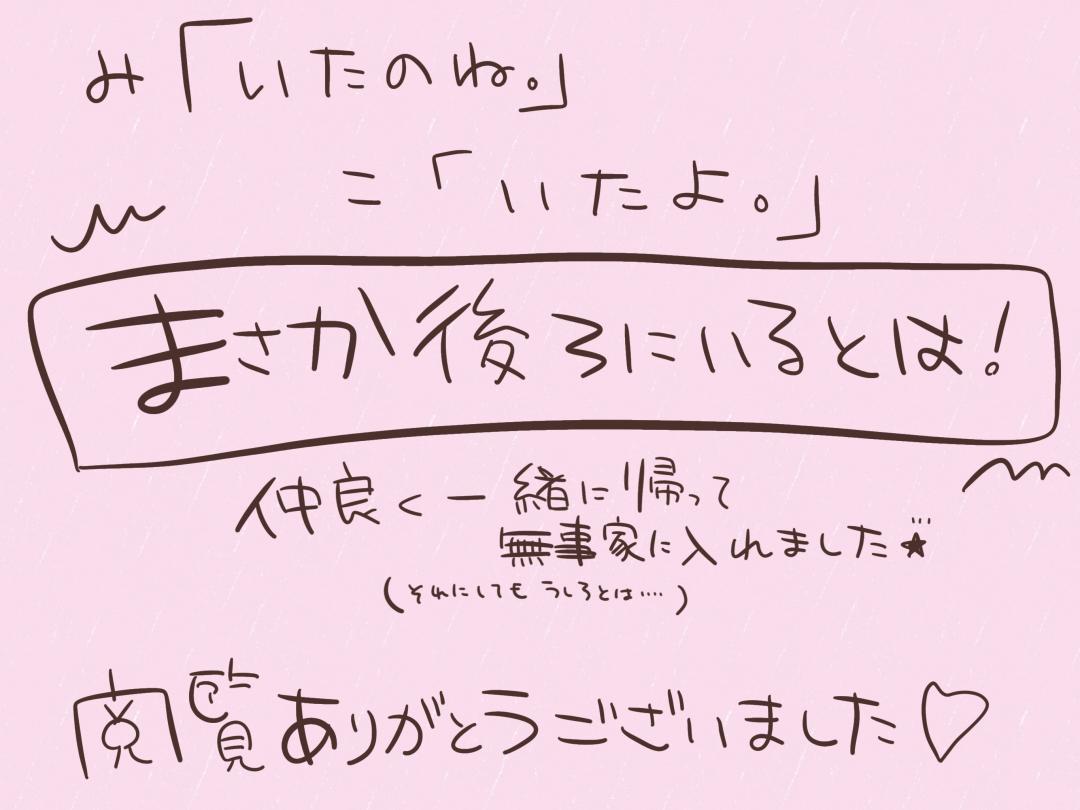 み「いたのね。」
こ「いたよ。」
まさか後ろにいるとは!
仲良く一緒に帰って
無事家に入れました★
(それにしても うしろとは‥‥)
閲覧ありがとうございました♡